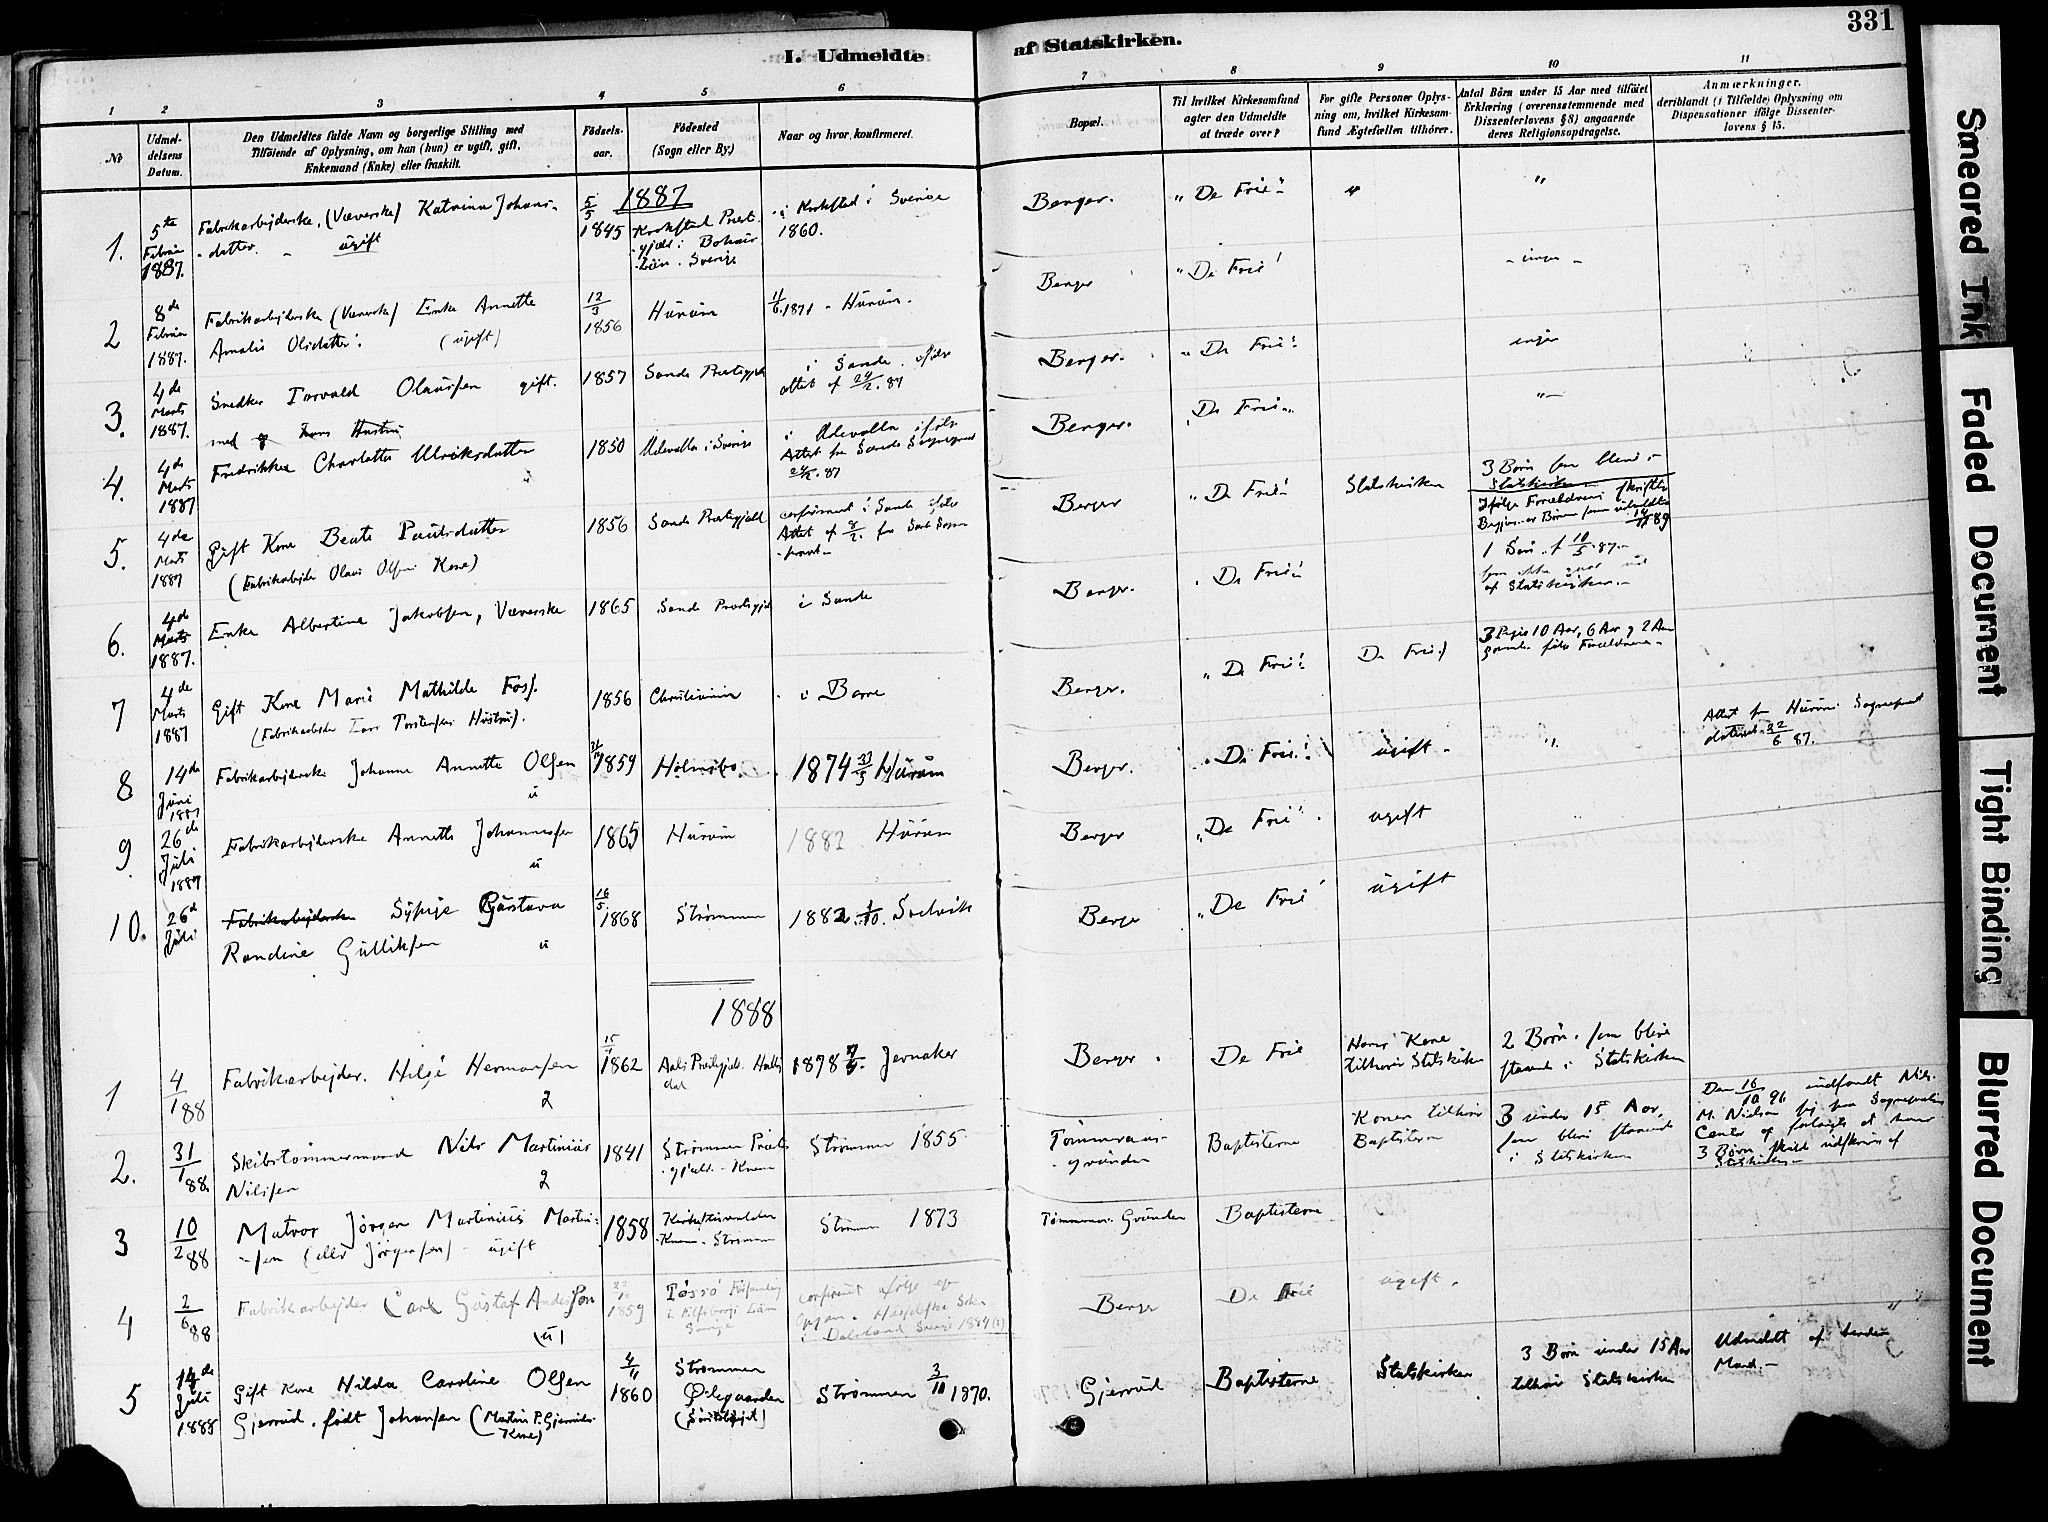 I. Udmeldte
af Statskirken.
331
1
2
3
4
5
6
7
8
9
10
11
No
Udmel-
delsens
Datum.
Den Udmeldtes fulde Navn og borgerlige Stilling med
Tilføiende af Oplysning, om han (hun) er ugift, gift,
Enkemand (Enke) eller fraskilt.
Fødsels-
aar.
Fødested
(Sogn eller By.)
Naar og hvor konfirmeret.
Bopæl.
Til hvilket Kirkesamfund
agter den Udmeldte
at træde over?
For gifte Personer Oplys-
ning om, hvilket Kirkesam-
fund Ægtefællen tilhører.
Antal Børn under 15 Aar med tilføiet
Erklæring (overensstemmende med
Dissenterlovens § 8) angaaende
deres Religionsopdragelse.
Anmærkninger,
deriblandt (i Tilfælde) Oplysning om
Dispensationer ifølge Dissenter-
lovens § 15.
1887
1.
5te
Februar
1887.
Fabrikarbejderske, (Væverske) Katrina Johans-
-datter. - ugift
5/5
1845
Krokstad Præst.
gjeld i Bohus
Län. Sverige
i Krokstad i Sverige
1860.
Berger.
"De Frie"
"
"
2
8de
Februar
1887.
Fabrikarbejderske (Væverske) Enke Annette
Amalie Olsdatter. (ugift)
12/3
1856
Hurum
1871 - Hurum.
Berger
"De Frie"
- ingen -
3.
4de
Marts
1887.
Snedker Torvald Olaussen gift.
med Hans Hustru
1857
Sande Præstegjeld
i Sande ifølge
attest af 24/2. 87
Berger.
"De Frie"
ingen
4.
4de
Marts
1887
Fredrikke Charlotte Ulriksdatter
1850
Udevalla i Sverige
i Udevalla ifølge
Attest fra Sande Sogneprest
24/2. 87
Berger.
De Frie
"-
5.
4de
Marts
1887
Gift Kone Beate Paulsdatter
(Fabrikarbejder Olaus Olsens Kone)
1856
Sande Præstegjeld
confirmeret i Sande ifølge
Attest af 8/2. fra Sande Sogne
-prest-
Berger
"De Frie"
Statskirken
3 Børn som blive i
Statskirken
Ifølge Forældrenes skriftlige
Begjær er Børnene udmeldte
14/11 89
6.
4de
Marts
1887.
Enke Albertine Jakobsen, Væverske
1865
Sande Præstegjeld
i Sande
Berger.
De Frie
1 Søn f. 10/5. 87.-
som ikke
af Statskirken.-
7
4de
Marts
1887
Gift Kone Marie Mathilde Foss.
(Fabrikarbejder Lars Torstensens Hustru).
1856
Christiania
i Borre
Berger.
"De Frie"
De Frie
3 Piger 10 Aar, 6 Aar og 2 Aar
gamle følge Forældrene-
8
14de
Juni
1887
Fabrikarbejderske Johanne Annette Olsen
u
1859
Holmsbo.
1874 Hurum
Berger.
De Frie!
ugift -
"
Attest fra Hurums Sogneprest
dateret 22/6 87.
9.
26de
Juli
1887
Fabrikarbejderske Annette Johannesen
u
1865
Hurum
1882 Hurum
Berger
"De Frie"
ugift
10.
26d
Juli
Fabrikarbejderske Sypige Gustava
Randine Gulliksen u
16/5.
1868
Strømmen
1882. 1/10. Svelvik
Berger
"De Frie"
ugift
1888
1
4/1 88
Fabrikarbejder. Helge Hermansen
2
15/1
1862
Aals Prestegjeld. Halling
dal
1878 Jevnaker
Berger.
De Frie
Hans Kone
tilhører Statskirken
2 Børn. som blive
staaende i Statskirken
2.
31/1 88.
Skibstømmermand Nils Martinius
Nilsen 2
1841
Strømmen Præste
gjæld. - Knem
Strømmen 1855.
Tømmeraas-
grunden
Baptisterne
Konen tilhører
Baptisterne
3 under 15 Aar,
som blive staaende
i Statskirken
Den 16/10 96 indfandt Nils
M. Nielsen sig for Sognepresten
og forlangte at hans
3 Børn skulde udskrives af
Statskirken
3
10/2 88
Matros Jørgen Martinius Martin-
-sen (eller Jørgensen) - ugift
1858
Knem. Strømm
Strømm 1873
Tømmeraas. Grunden
Baptisterne
4
2/6 88
Fabrikarbejder Carl Gustaf Anderson
(u)
1859
Tøssø Församling
i Elfsborgs Län
Sverige
confirmeret ifølge
i Dalsland Sverige
Berger
De Frie
ugift.
5
14de
Juli
1888
Gift Kone Hilda Caroline Olsen
Gjerrud. født Johansen (Martin P. Gjerruds
Kone)
4/11
1860
Strømmen
Ødegaarden
Strømmen 3/10 1870.
Gjerrud
Baptisterne
Statskirken
3 Børn under 15 Aar
tilhører Statskirken
Udmeldt af hendes
Mand.-
Smeared Ink
Faded Document
Tight Binding
Blurred Document